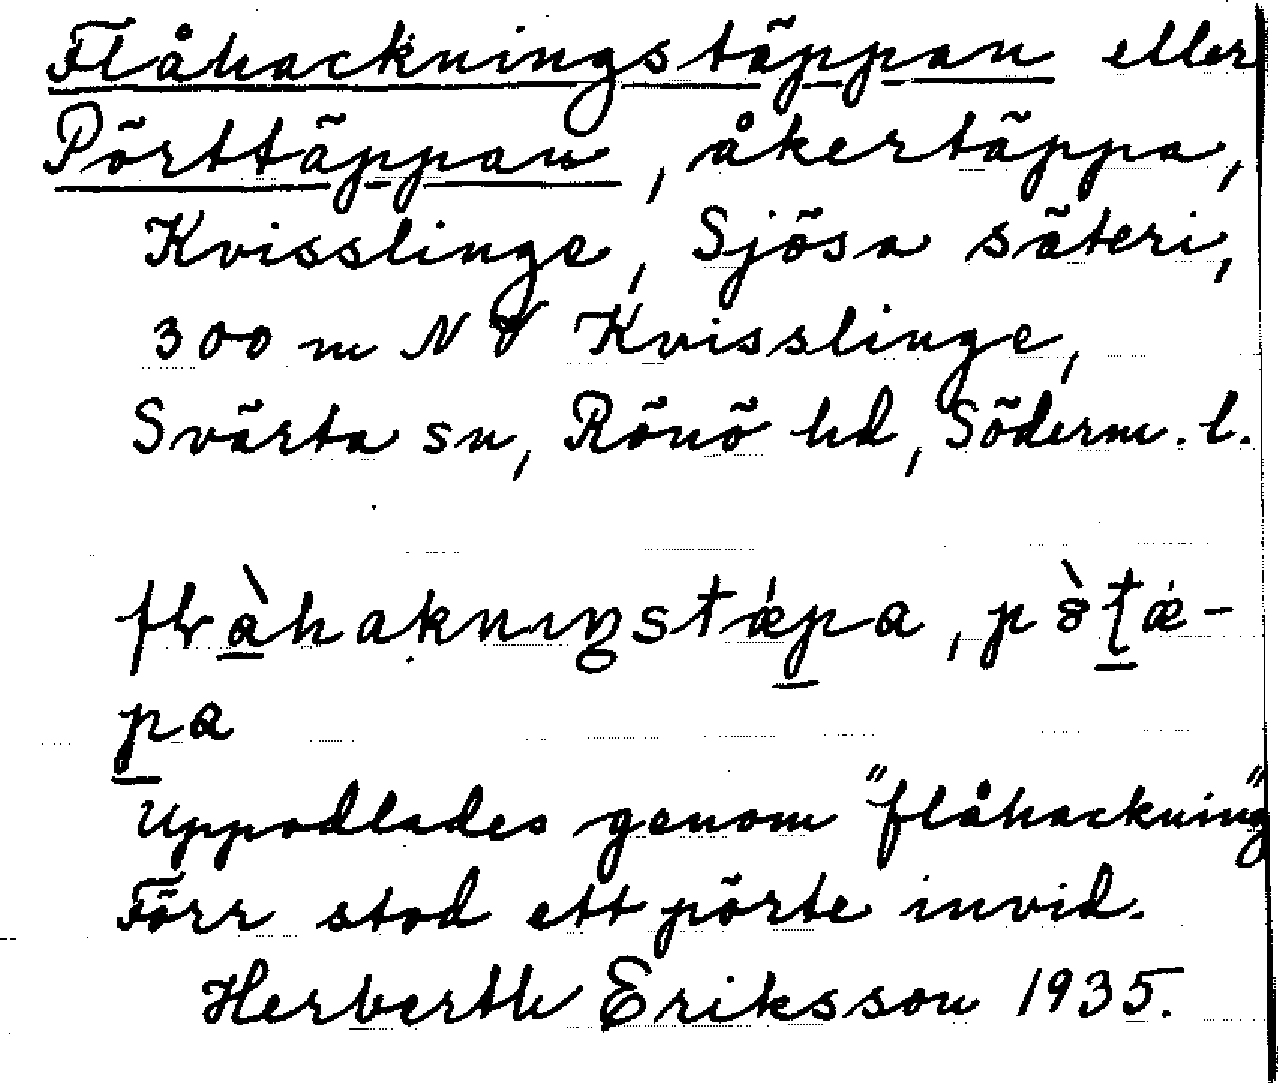 Flåhackningstäppan eller
Pörttäppan, åkertäppa,
Kvisslinge, Sjösa säteri,
300 m NV Kvisslinge,
Svärta sn, Rönö hd, Söderm. l.
Uppodlades genom "flåhackning"
Förr stod ett pörte invid.
Herberth Eriksson 1935.